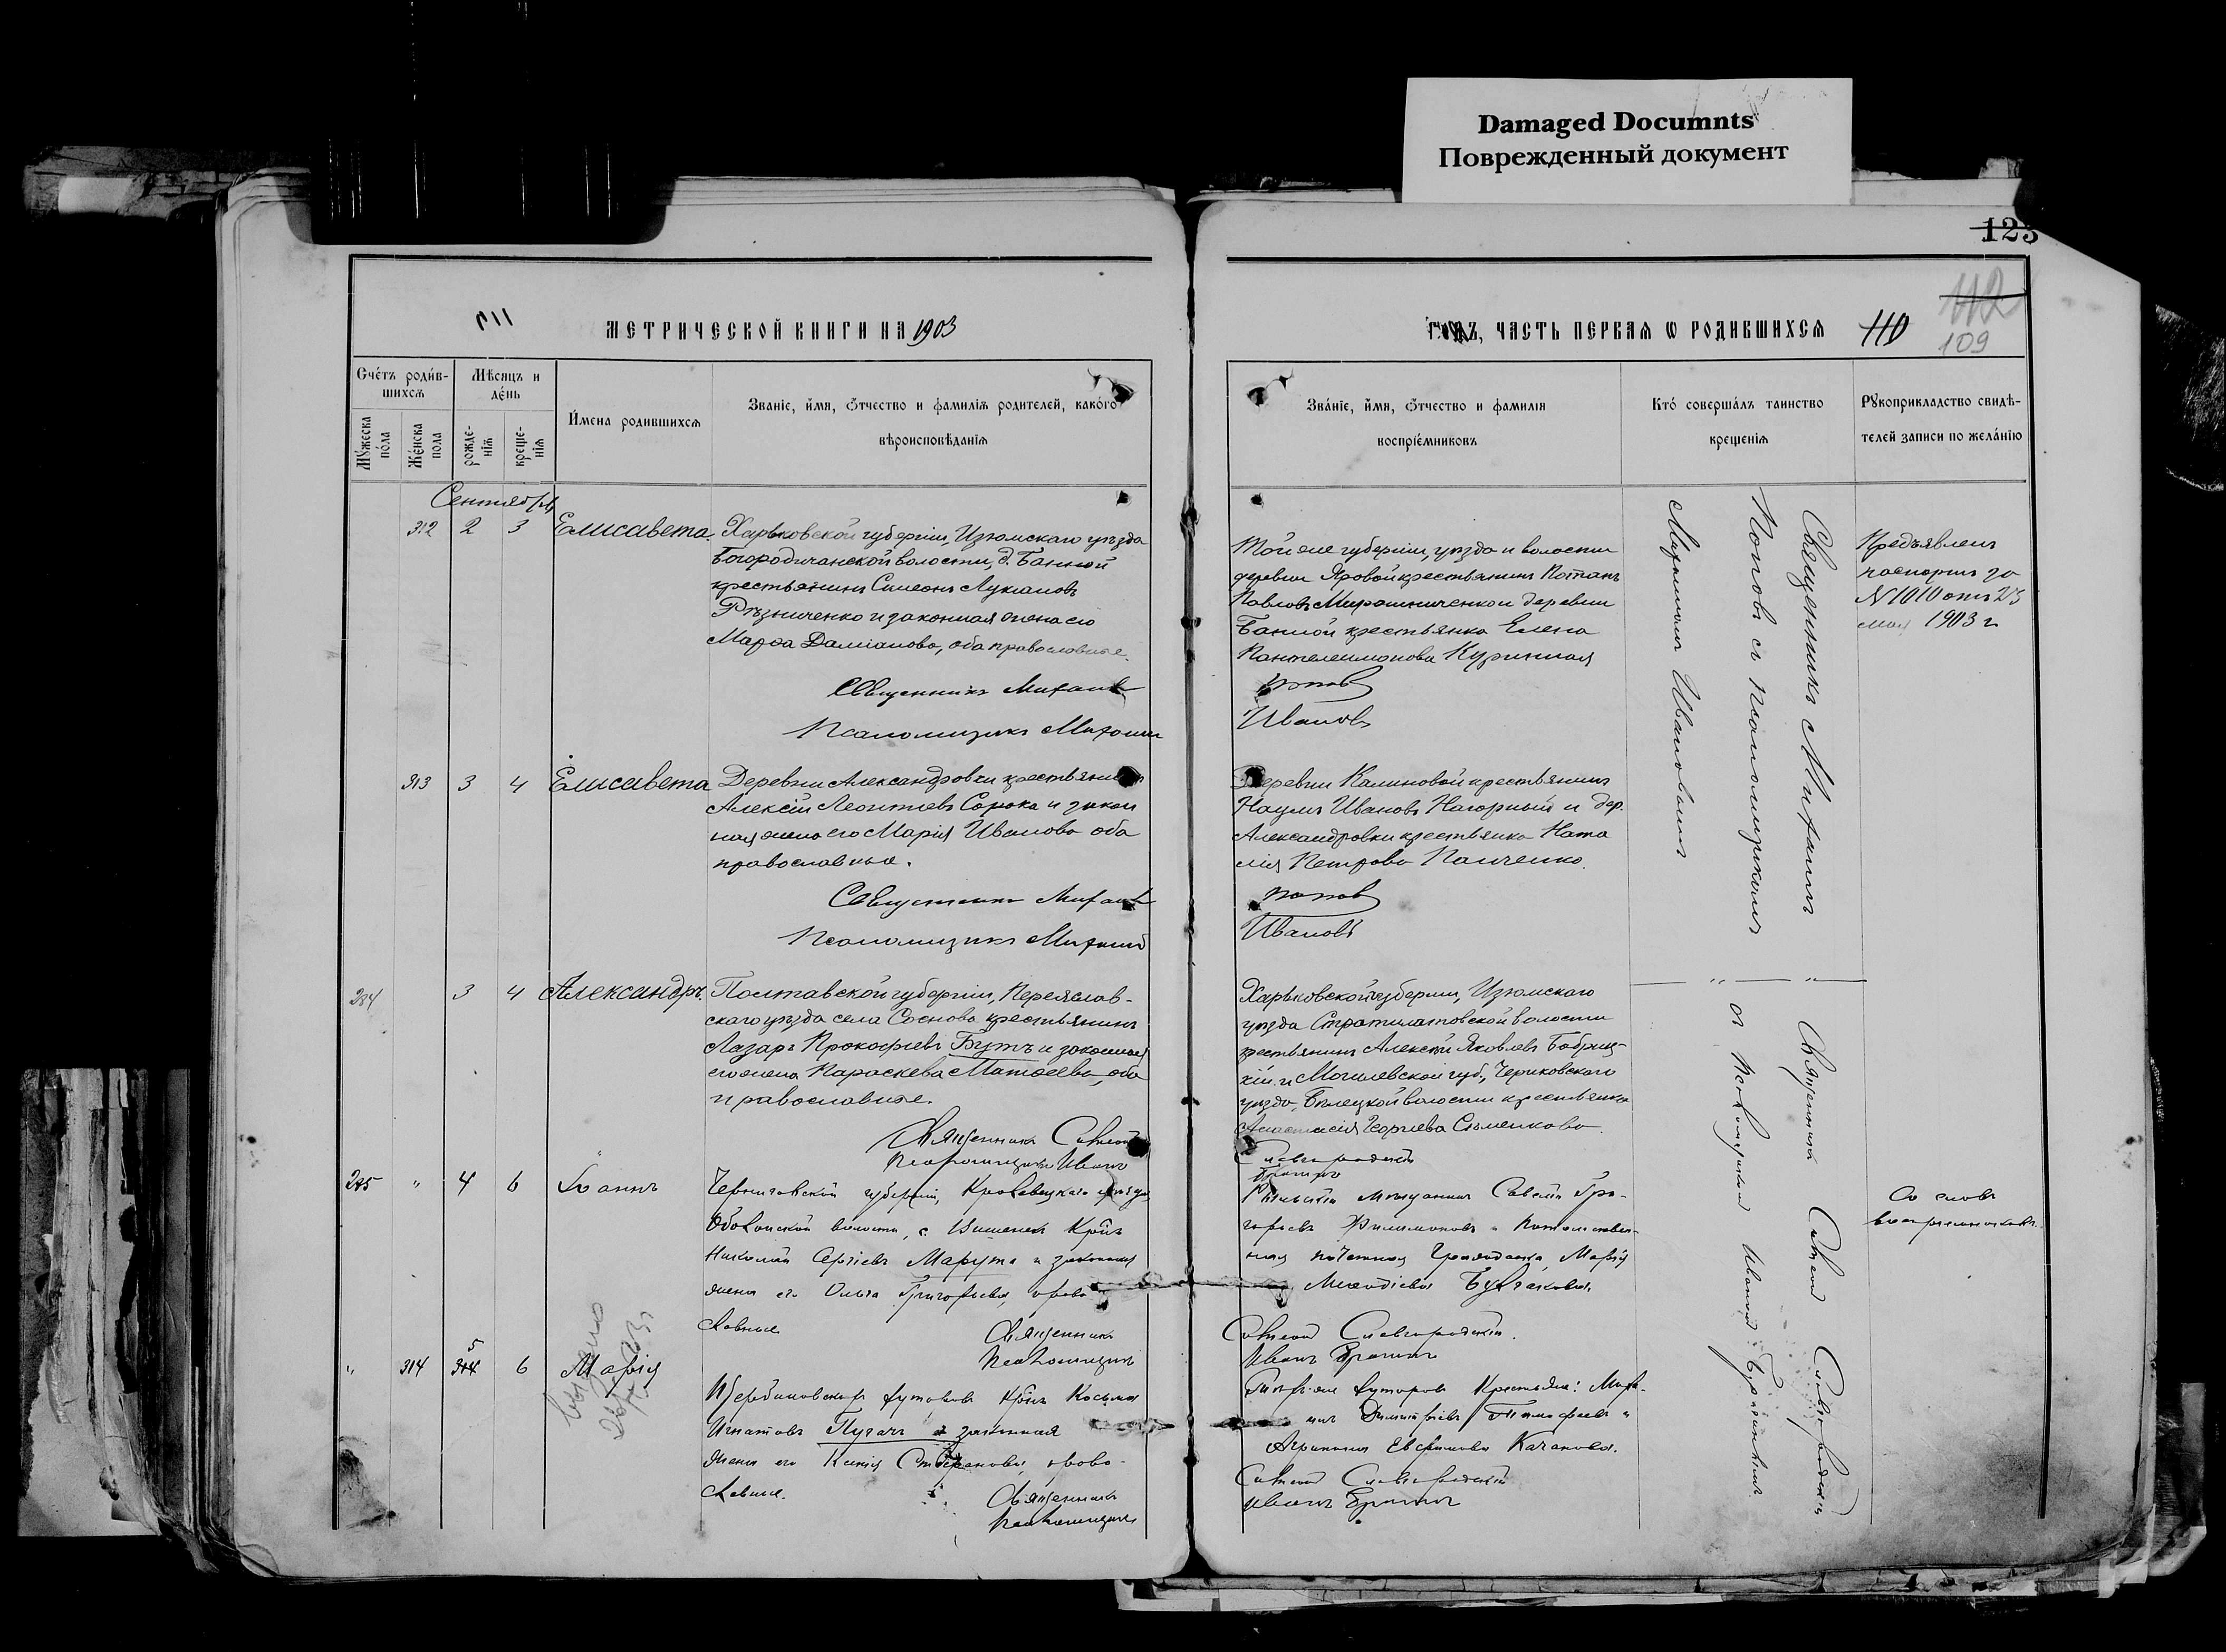 Damaged Documnts
Поврежденный документ
123
112
109
110
МЕТРИЧЕСКОЙ КНИГИ НА 1903
ГОДЪ, ЧАСТЬ ПЕРВАѦ Ѡ РОДИВШИХСѦ
Счéтъ роди́в-
шихсѧ
Мѣсяцъ и
дéнь
Мꙋ́жеска
пóла
Жéнска
пола
рожде-
нїѧ
креще-
нїѧ
И́мена родившихсѧ
Званїе, и́мѧ, ѻ́тчество и фамилїѧ родителей, какóго
вѣроисповѣданїѧ
Звáнїе, и́мѧ, ѻ́тчество и фамилїѧ
воспрїéмниковъ
Ктó совершáлъ таинство
крещенїѧ
Рꙋкоприкладство свидѣ-
телей записи по желáнїю
Сентябрь
312 2 3 Елисавета.
Харьковской губерніи, Изюмскаго уѣзда
Богородичанской волости, д. Банной
крестьянинъ Симеонъ Лукіановъ
Рѣзниченко и законная жена его
Марѳа Даміанова, оба православные.
Священникъ Михаилъ
Псаломщикъ Митрофанъ
Той же губерніи, уѣзда и волости
деревни Яровой крестьянинъ Потапъ
Павловъ Мирошниченко и деревни
Банной крестьянка Елена
Пантелеимонова Куринная
Поповъ
Ивановъ
Священникъ Михаилъ
Поповъ съ псаломщикомъ
Ивановымъ
Предъявленъ
паспортъ за
№ 1010 отъ 23
мая 1903 г.
313 3 4 Елисавета
Деревни Александровки крестьянинъ
Алексій Леонтіевъ Сорока и закон
ная жена его Марія Иванова оба
православные.
Священникъ Михаилъ
Псаломщикъ
Деревни Калиновой крестьянинъ
Наумъ Ивановъ Нагорный и дер.
Александровки крестьянка Ната
лія Петрова Панченко.
Поповъ
Ивановъ
284 3 4 Александръ.
Полтавской губерніи, Переяслав-
скаго уѣзда села Соснова крестьянинъ
Лазарь Прокофіевъ Бутъ и законная
его жена Параскева Матѳеева, оба
православные.
Священникъ
Псаломщикъ Иванъ
Харьковской губерніи, Изюмскаго
уѣзда Стратилатовской волости
крестьянинъ Алексѣй Яковлевъ Бобриц-
кій и Могилевской губ., Чериковскаго
уѣзда, волости крестьянка
Анастасія Георгіева
285 " 4 6 Іоаннъ
Черниговской губерніи, Кролевецкаго уѣзда
волости, с. Вишенекъ Кр-нъ
Николай Сергіевъ Марута и законная
жена его Ольга Григорьева, право
славные.
Священникъ
Псаломщикъ
мѣщанинъ Савелій Гри-
горьевъ Филимоновъ и Потомствен-
ная почетная Гражданка, Марія
Меѳодіева
Иванъ
Со словъ
воспріемниковъ.
" 314 5 6 Марія
Щербиновскихъ хуторовъ Кр-нъ Косьма
Игнатовъ Пугачъ и законная
жена его Ксенія Стефанова, право-
славные.
Священникъ
Псаломщикъ
Тѣхъ же хуторовъ Крестьяне:
Димитріевъ Тимофеевъ и
Агриппина Евфимова Качанова.
Иванъ